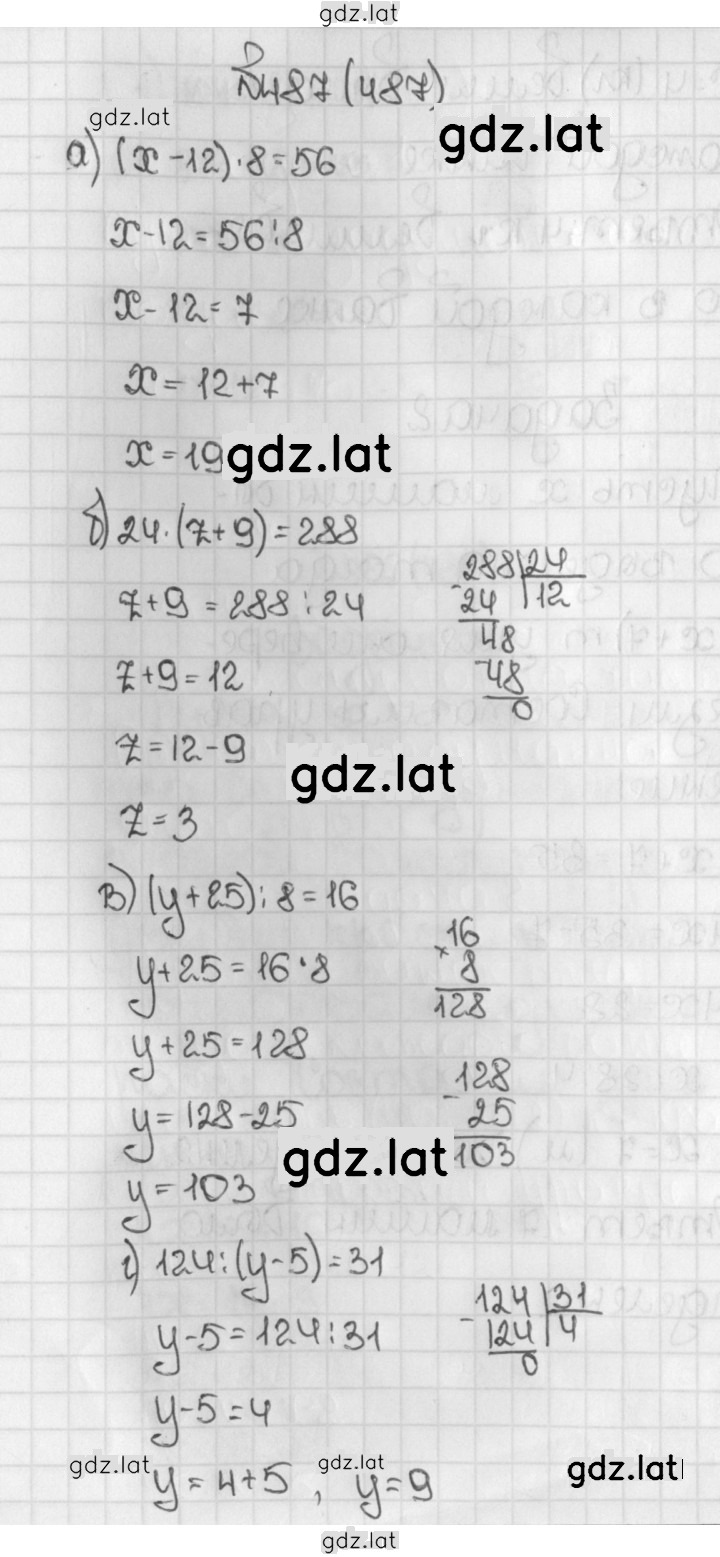 gdz.lat
№487 (487)
gdz.lat
gdz.lat
а) (x - 12) · 8 = 56
x - 12 = 56 : 8
x - 12 = 7
x = 12 + 7
x = 19
gdz.lat
б) 24 · (z + 9) = 288
z + 9 = 288 : 24
z + 9 = 12
z = 12 - 9
z = 3
- 288 | 24
24 | 12
48
- 48
0
gdz.lat
в) (y + 25) : 8 = 16
y + 25 = 16 · 8
y + 25 = 128
y = 128 - 25
y = 103
× 16
8
128
- 128
25
103
gdz.lat
г) 124 : (y - 5) = 31
y - 5 = 124 : 31
y - 5 = 4
y = 4 + 5 , y = 9
- 124 | 31
124 | 4
0
gdz.lat
gdz.lat
gdz.lat
gdz.lat